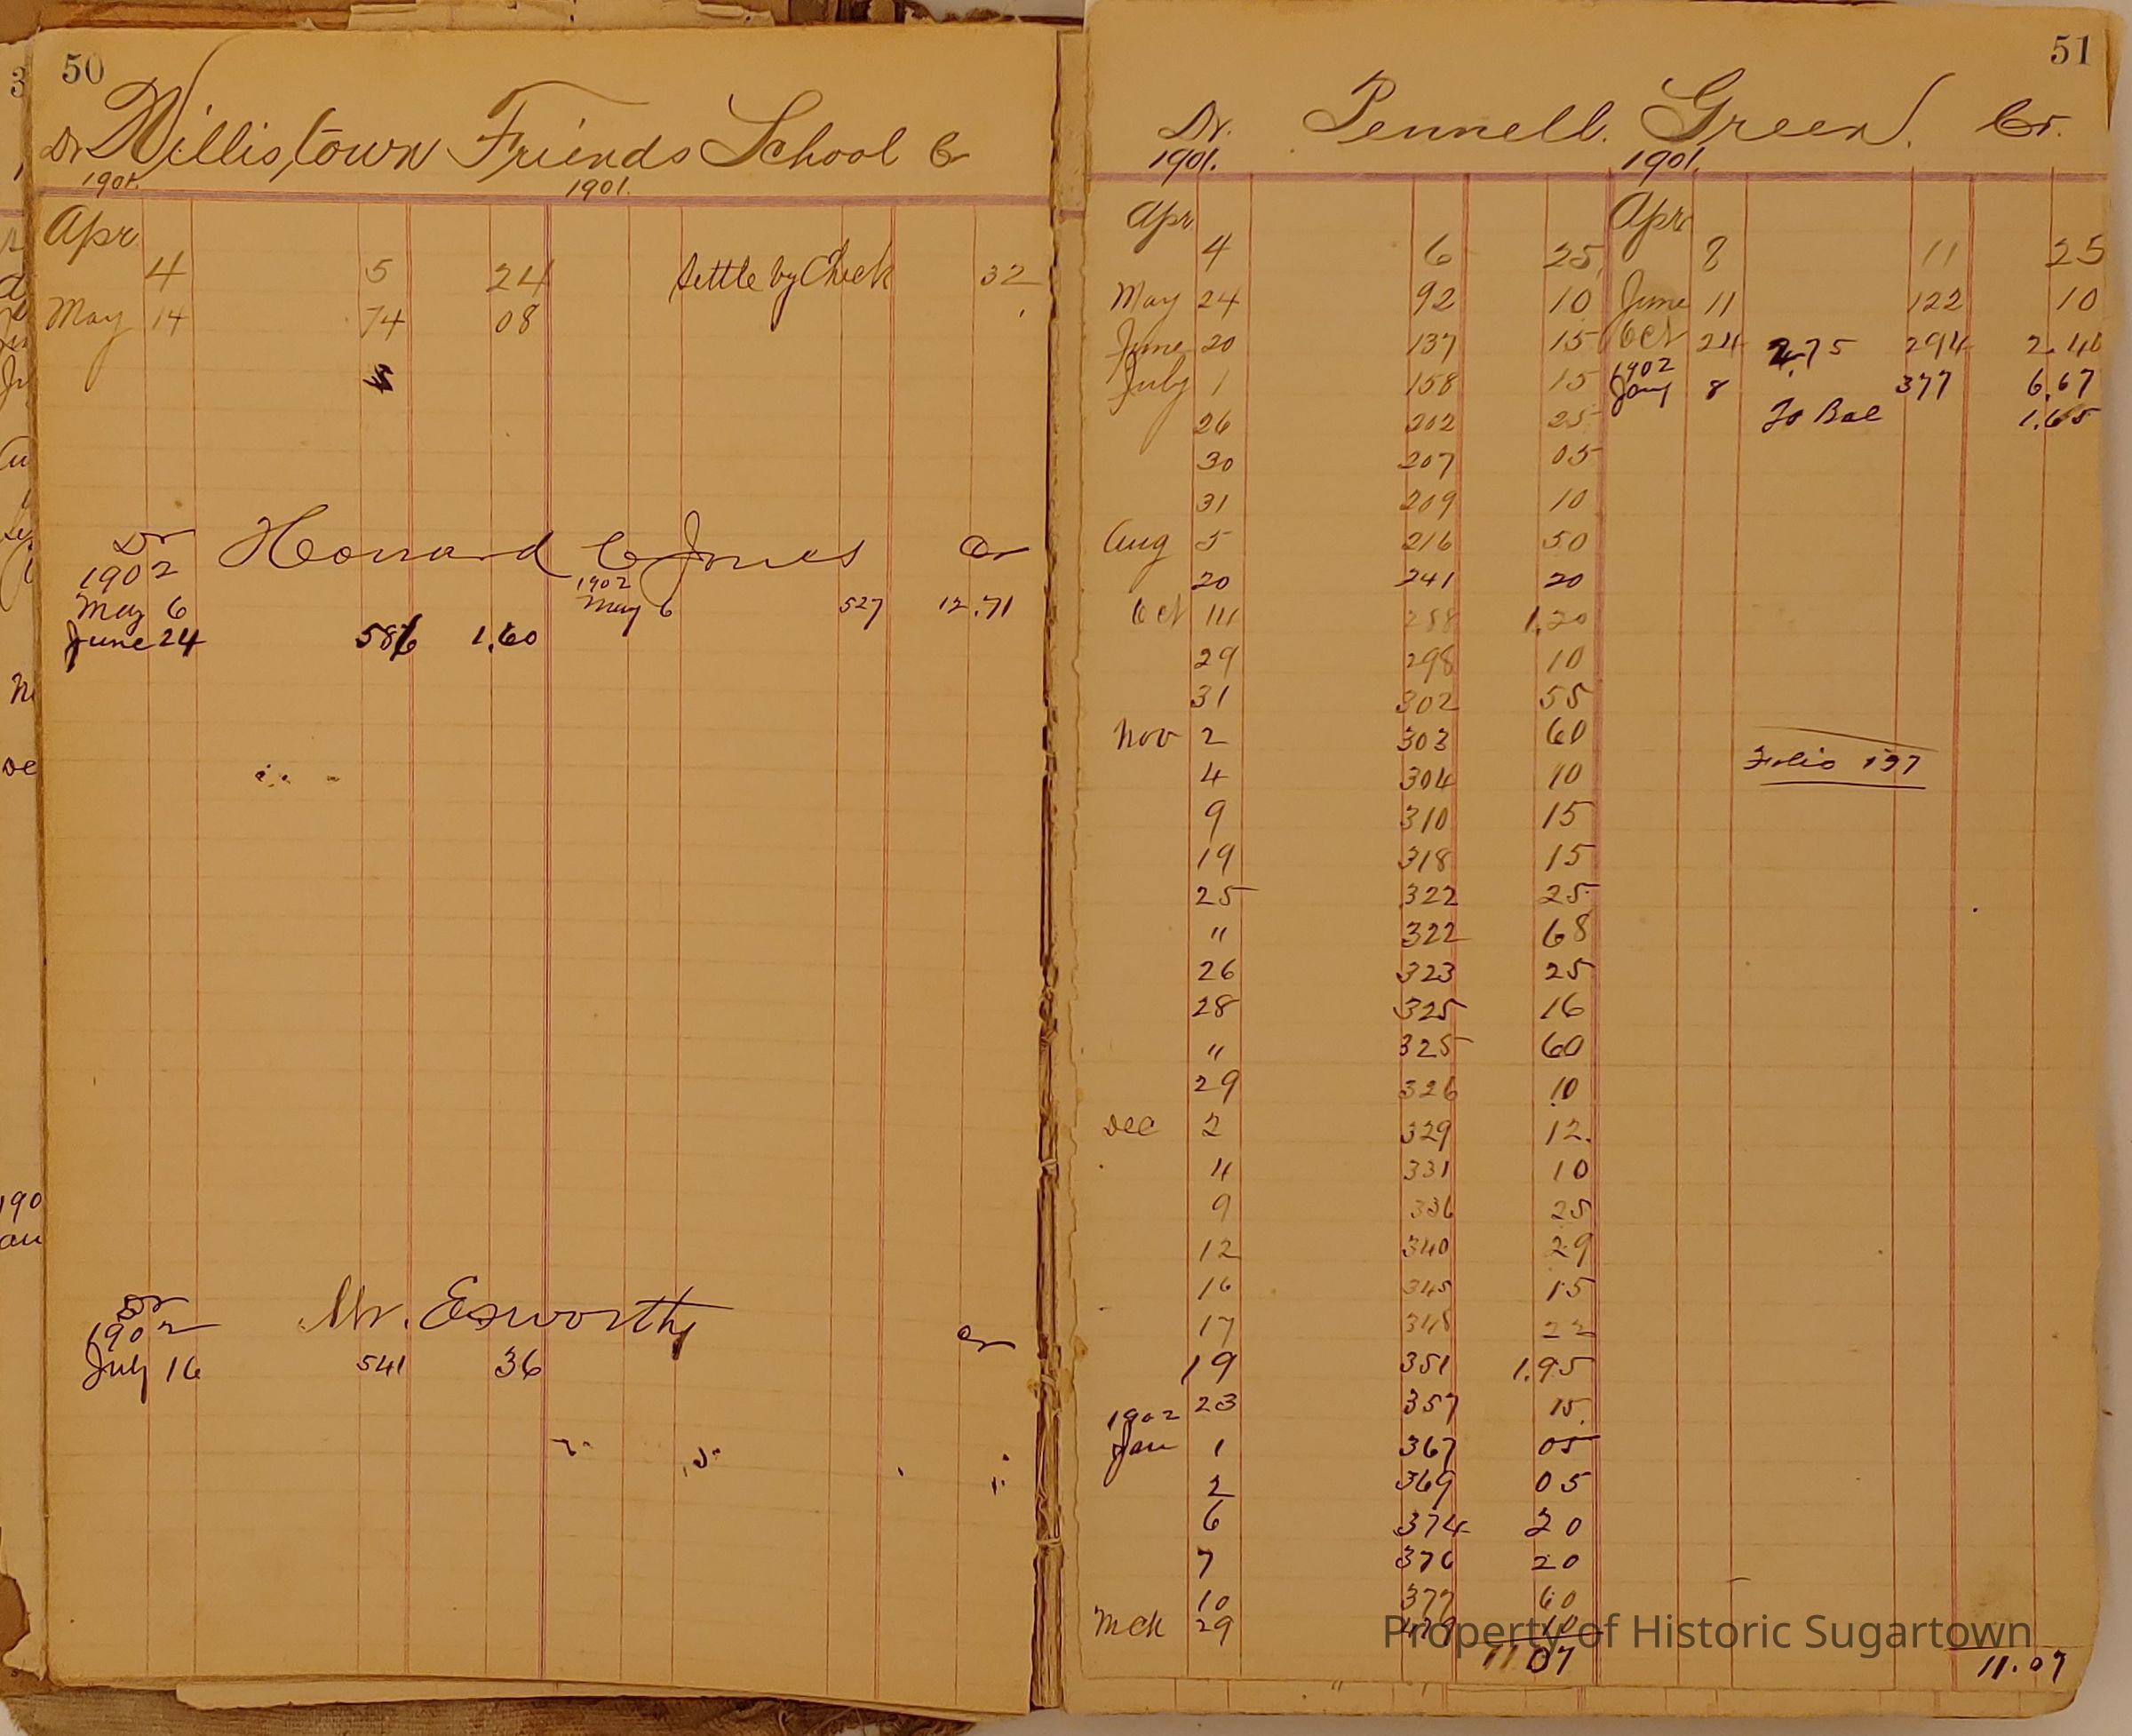 50
Dr Willistown Friends School Cr
1901. 1901.
Apr
4 5 24 Settle by Check 32
May 14 74 08
Dr Howard C Jones Cr
1902 1902
May 6 May 6 527 12.71
June 24 586 1.60
Dr Mr. Esworthy
1902 Cr
July 16 541 36
51
Dr. Pennell. Green. Cr.
1901. 1901.
Apr Apr
4 6 25 8 11 25
May 24 92 10 June 11 122 10
June 20 137 15 Oct 24 2.75 294 2.40
July 1 158 15 1902 Jany 8 377 6.67
26 202 25 To Bal 1.65
30 207 05
31 209 10
Aug 5 216 50
20 241 20
Oct 288 1.20
29 298 10
31 302 55
Nov 2 303 60
Folio 137
4 304 10
9 310 15
19 318 15
25 322 25
" 322 68
26 323 25
28 325 16
" 325 60
29 326 10
Dec 2 329 12.
4 331 10
9 336 25
12 340 29
16 345 15
17 348 22
19 351 1.95
23 357 15
1902
Jan 1 367 05
2 369 05
6 374 20
7 376 20
10 377 60
Mch 29 479 10
11 07 11.07
Property of Historic Sugartown